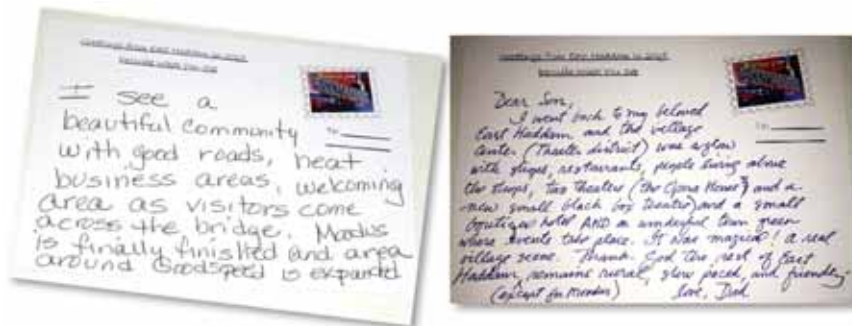 Greetings from East Haddam in 2027
Describe what you see
I see a
beautiful community
with good roads, neat
business areas, welcoming
area as visitors come
across the bridge. Moodus
is finally finished and area
around Goodspeed is expanded
To:
Dear Son,
I went back to my beloved
East Haddam and the village
center (theater district) was aglow
with shops, restaurants, people living above
the shops, two theaters (the Opera House and a
new small black box theatre) and a small
boutique hotel AND a wonderful town green
where events take place. It was magical! a real
village scene. Thank God the rest of East
Haddam remains rural, slow paced, and friendly
(except for Moodus) Love, Dad
To: